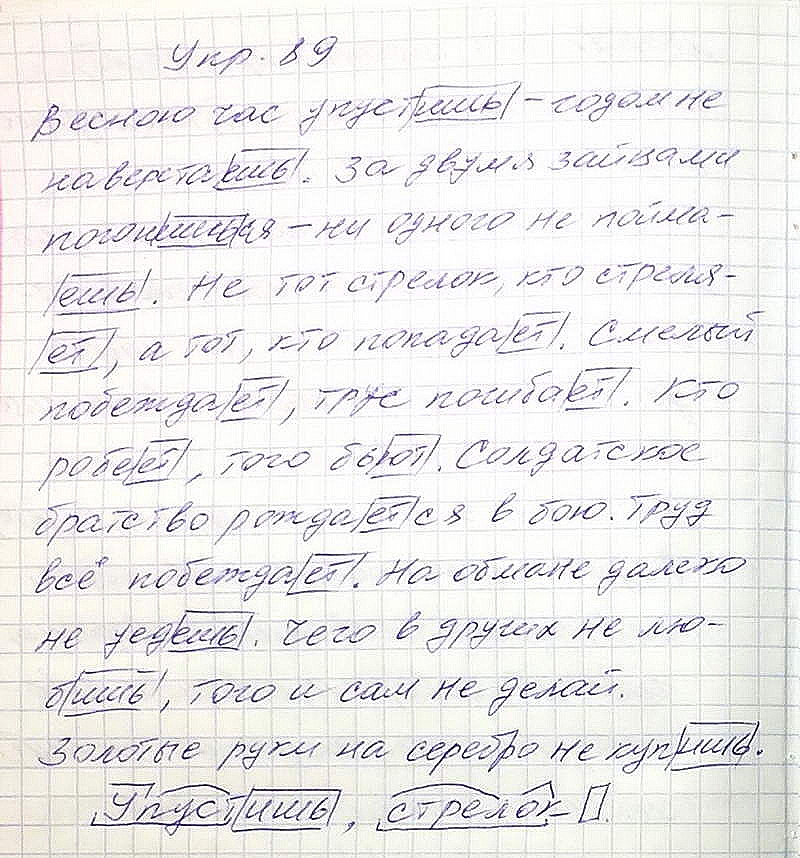 Упр. 89
Весною час упустишь - годом не
наверстаешь. За двумя зайцами
погонишься - ни одного не пойма-
ешь. Не тот стрелок, кто стреля-
ет, а тот, кто попадает. Смелый
побеждает, трус погибает. Кто
робеет, того бьют. Солдатское
братство рождается в бою. Труд
всё побеждает. На обмане далеко
не уедешь. Чего в других не лю-
бишь, того и сам не делай.
Золотые руки на серебро не купишь.
Упустишь, стрелок.